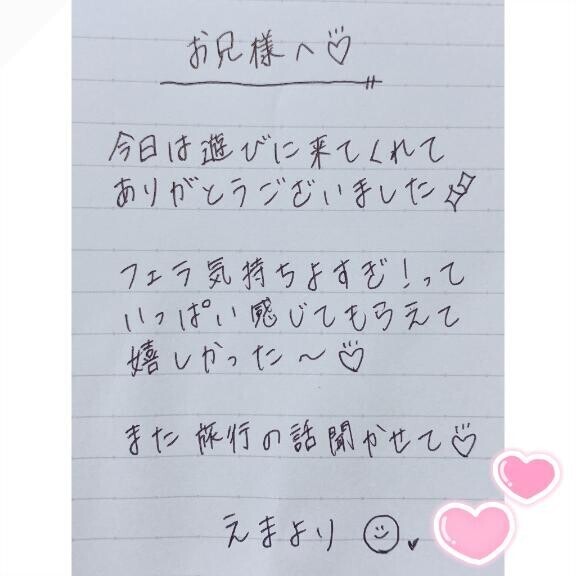 お兄様へ♡
今日は遊びに来てくれて
ありがとうございました
フェラ気持ちよすぎ!って
いっぱい感じてもらえて
嬉しかった〜♡
また旅行の話聞かせて♡
えまより